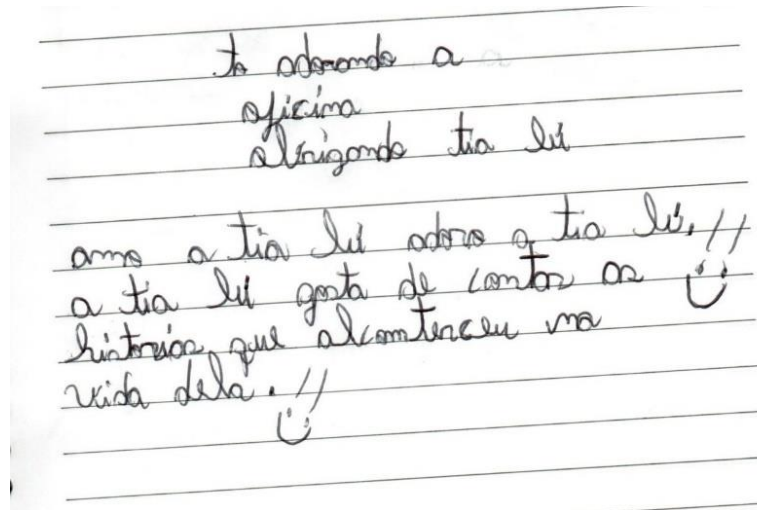 to adorando a
oficina
obrigondo tia lú
amo a tia lú adoro a tia lú.//
a tia lú gosta de contar as
historias que alcomteceu na
vida dela.//